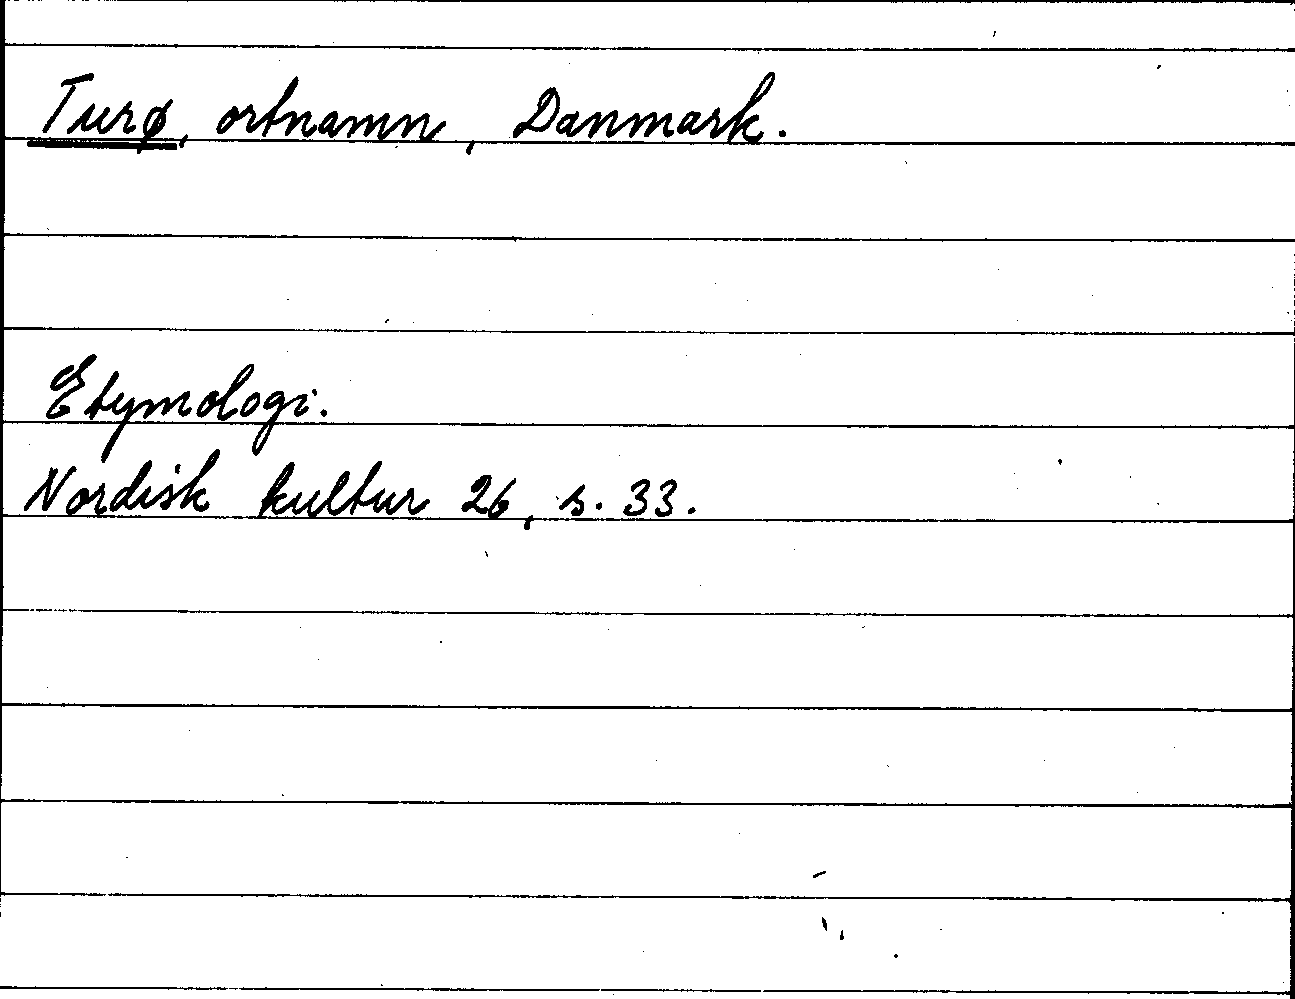 Turø, ortnamn, Danmark.
Etymologi.
Nordisk kultur 26, s. 33.